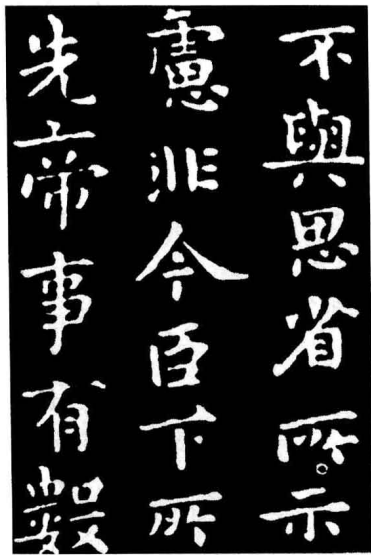 不與思省所示
慮非今臣下所
先帝事有數